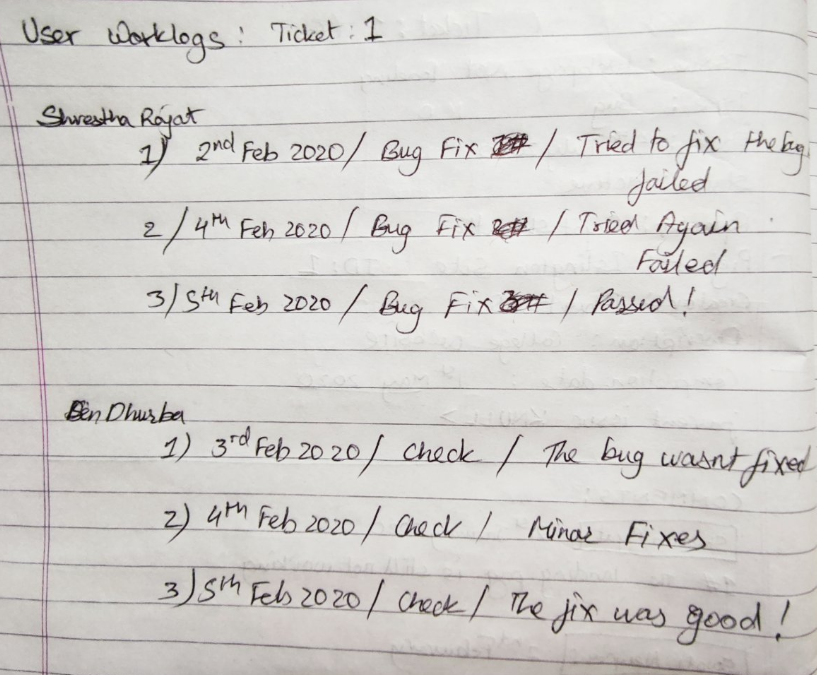 User Worklogs: Ticket: 1
Shrestha Rajat
1) 2nd Feb 2020 / Bug Fix / Tried to fix the bug.
failed
2 / 4th Feb 2020 / Bug Fix / Tried Again
Failed
3) 5th Feb 2020 / Bug Fix / Passed!
Ben Dhurba
1) 3rd Feb 2020 / Check / The bug wasnt fixed
2) 4th Feb 2020 / Check / Minor Fixes
3) 5th Feb 2020 / Check / The fix was good!